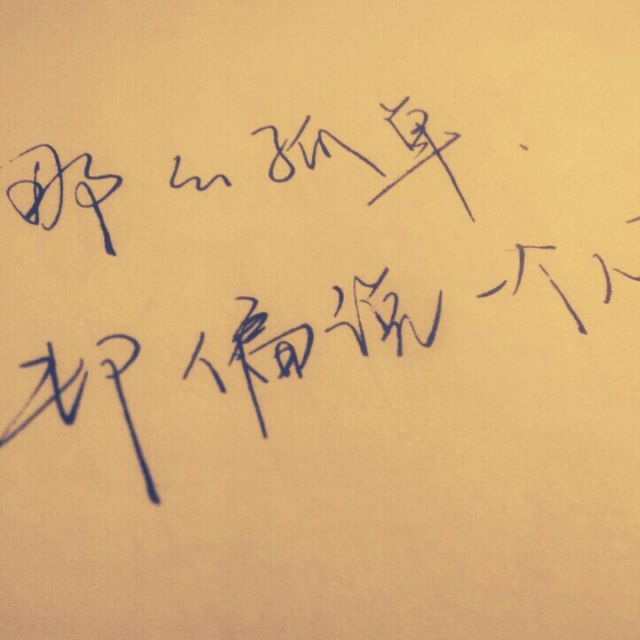 那么孤单.
却偏说一个人